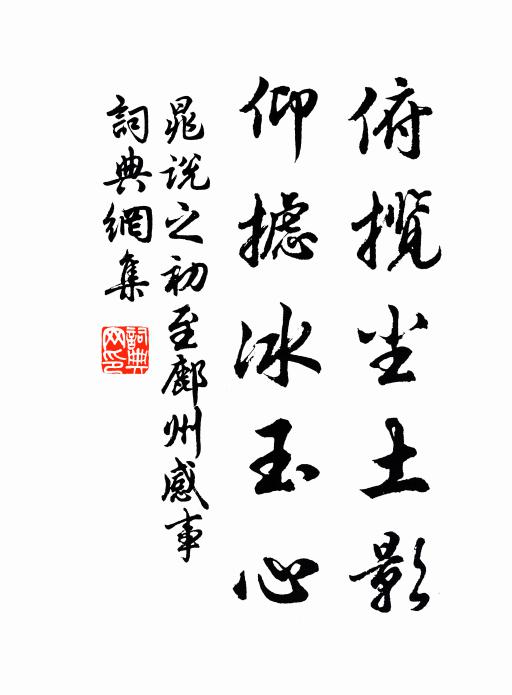 俯揽尘土影
仰摅冰玉心
晁说之初至鄜州感事
詞典網集
詞典网印